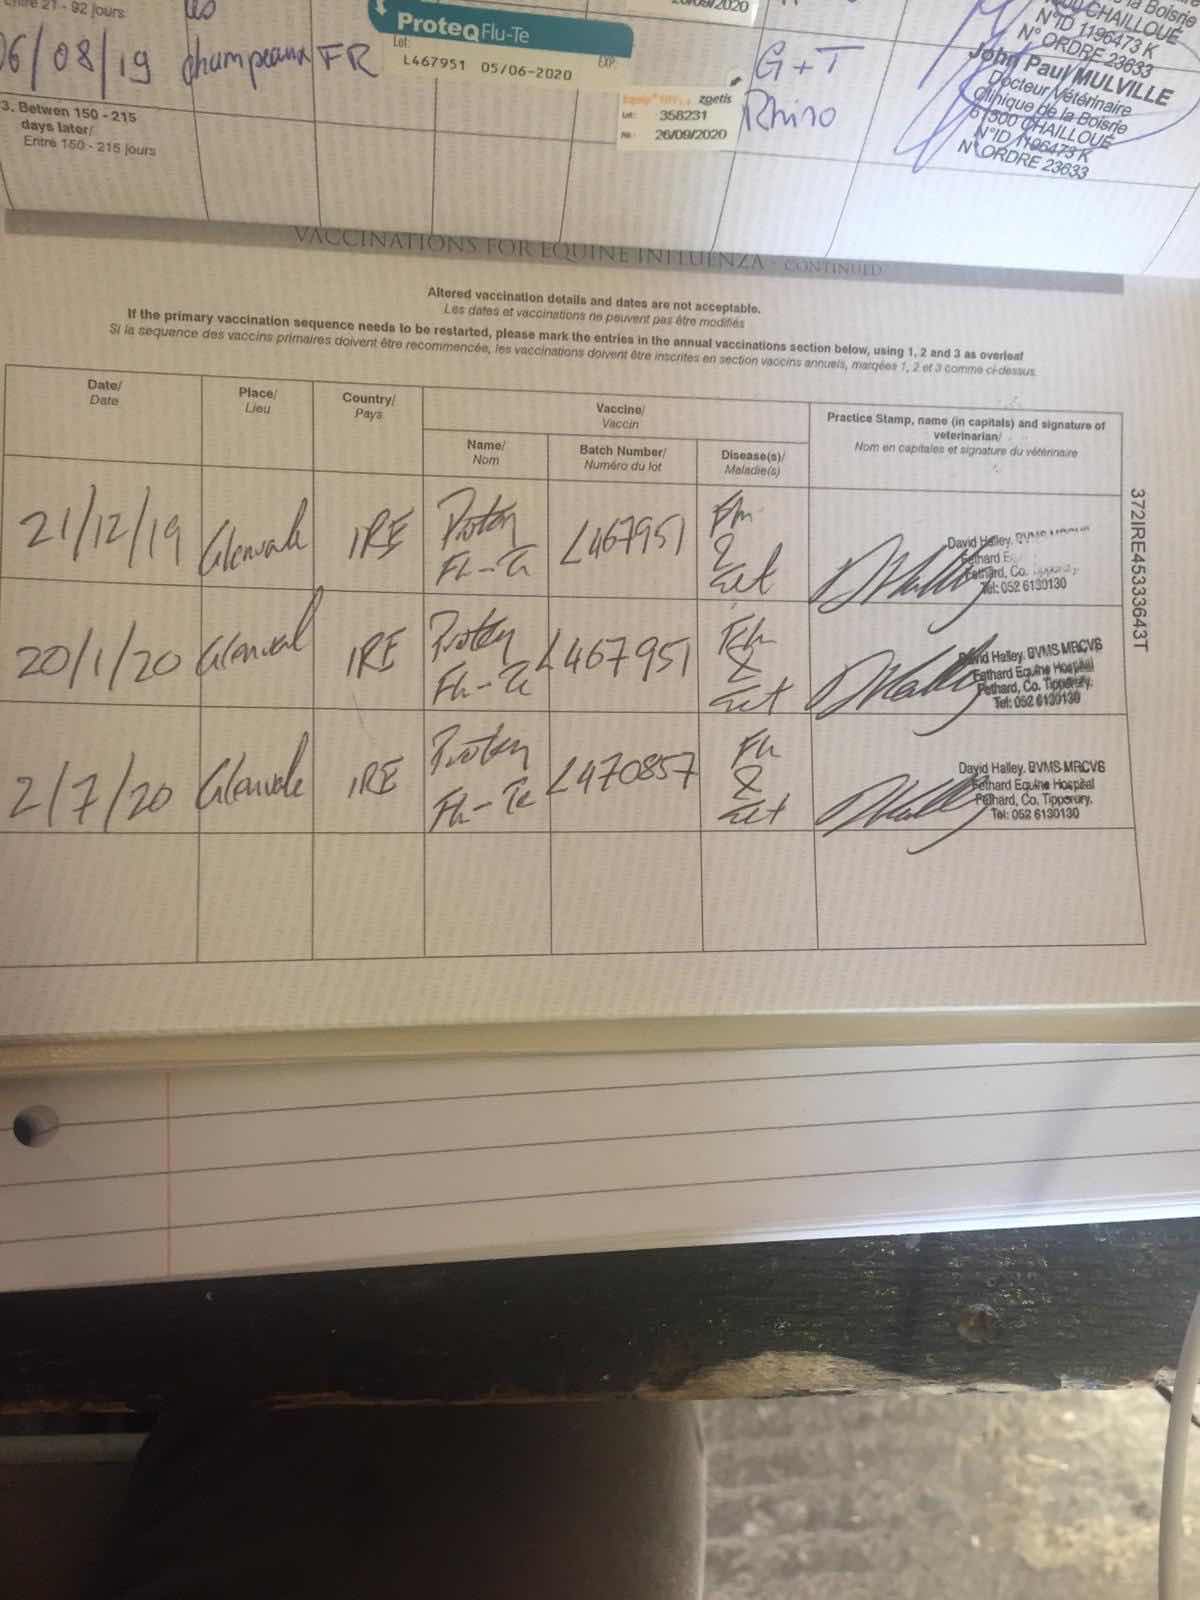 Entre 21 - 92 jours
06/08/19 champeaux FR
ProteqFlu-Te
Lot: EXP:
L467951 05/06-2020
20/09/2020
zoetis
Lot: 358231
26/09/2020
G + T
Rhino
de la Boisrie
CHAILLOUÉ
N°ID 1196473 K
N° ORDRE 23633
John Paul MULVILLE
Docteur Vétérinaire
Clinique de la Boisrie
61500 CHAILLOUÉ
N°ID 1196473 K
N° ORDRE 23633
3. Betwen 150 - 215
days later/
Entre 150 - 215 jours
VACCINATIONS FOR EQUINE INFLUENZA - CONTINUED
Altered vaccination details and dates are not acceptable.
Les dates et vaccinations ne peuvent pas être modifiés
If the primary vaccination sequence needs to be restarted, please mark the entries in the annual vaccinations section below, using 1, 2 and 3 as overleaf
Si la sequence des vaccins primaires doivent être recommencée, les vaccinations doivent être inscrites en section vaccins annuels, marqées 1, 2 et 3 comme ci-dessus.
Date/
Date
Place/
Lieu
Country/
Pays
Vaccine/
Vaccin
Name/
Nom
Batch Number/
Numéro du lot
Disease(s)/
Maladie(s)
Practice Stamp, name (in capitals) and signature of
veterinarian/
Nom en capitales et signature du vétérinaire
21/12/19 Glenvale IRE Proteq
Flu-Te
L467951 Flu
&
Tet
David Halley. BVMS MRCVS
Fethard
Fethard, Co.
Tel: 052 6130130
20/1/20 Glenval IRE Proteq
Flu-Te
L467951 Flu
&
Tet
David Halley. BVMS MRCVS
Fethard Equine Hospital
Fethard, Co. Tipperary.
Tel: 052 6130130
2/7/20 Glenvale IRE Proteq
Flu-Te
L470857 Flu
&
Tet
David Halley. BVMS MRCVS
Fethard Equine Hospital
Fethard, Co. Tipperary.
Tel: 052 6130130
372IRE45333643T